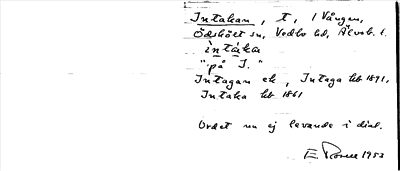 Intakan, t, i Vången,
Ödskölt sn, Vedbo hd, Älvsb. l.
intaka
"på I."
Intagan ek, Intaga hb 1871,
Intaka hb 1861
Ordet nu ej levande i dial.
E 1953